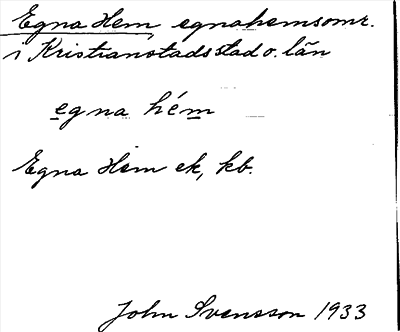 Egna Hem, egnahemsomr.
i Kristianstads stad o. län
egna hém
Egna Hem ek, kb.
John Svensson 1933